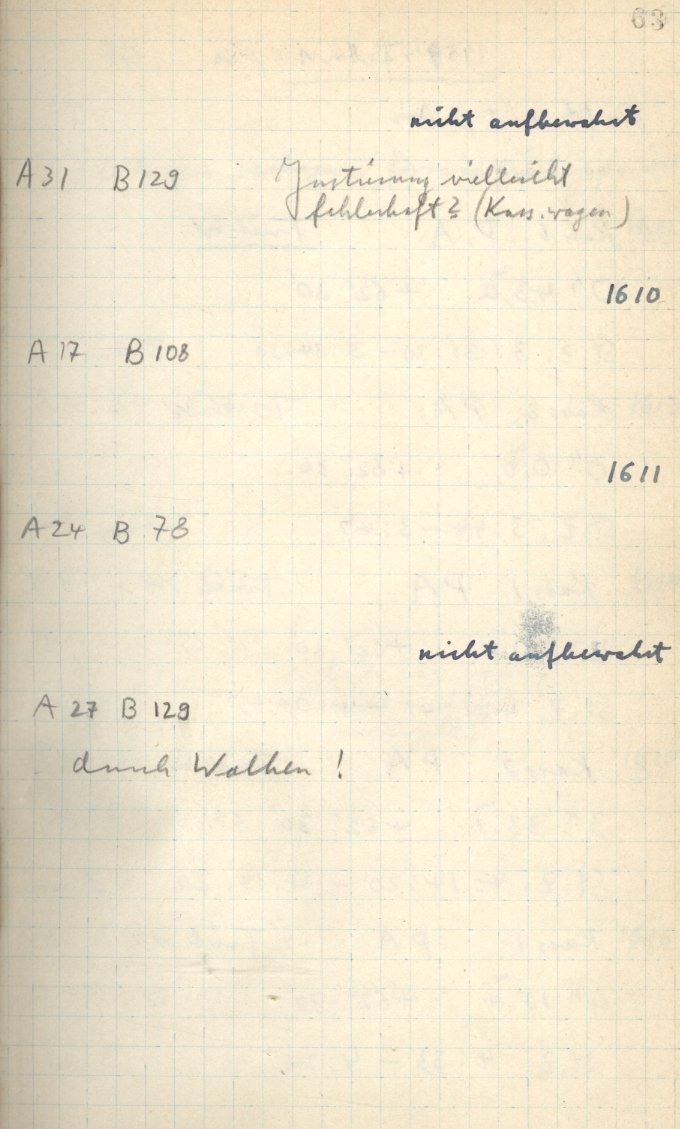 63
nicht aufbewahrt
A 31 B 129 Justierung vielleicht
fehlerhaft? (Kass.wagen)
1610
A 17 B 108
1611
A 24 B 78
nicht aufbewahrt
A 27 B 129
durch Wolken !